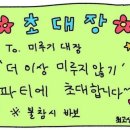 초대장
To. 미루기 대장
'더 이상 미루지 않기'
파티에 초대합니다~
※ 불참시 바보